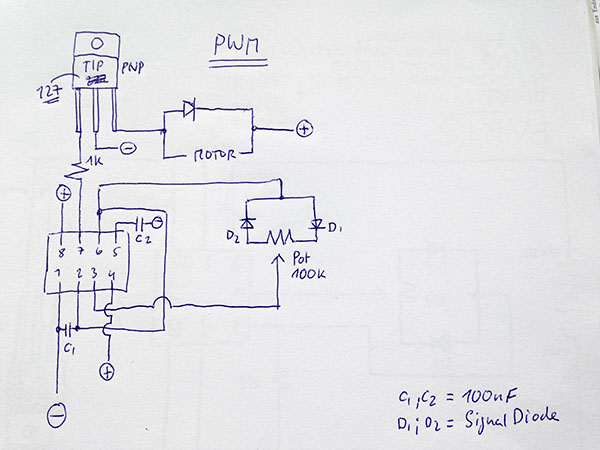 PWM
TIP
PNP
127
+
ROTOR
-
1K
+
-
C2
D2
D1
8 7 6 5
Pot
100K
1 2 3 4
C1
+
-
C1, C2 = 100nF
D1; D2 = Signal Diode